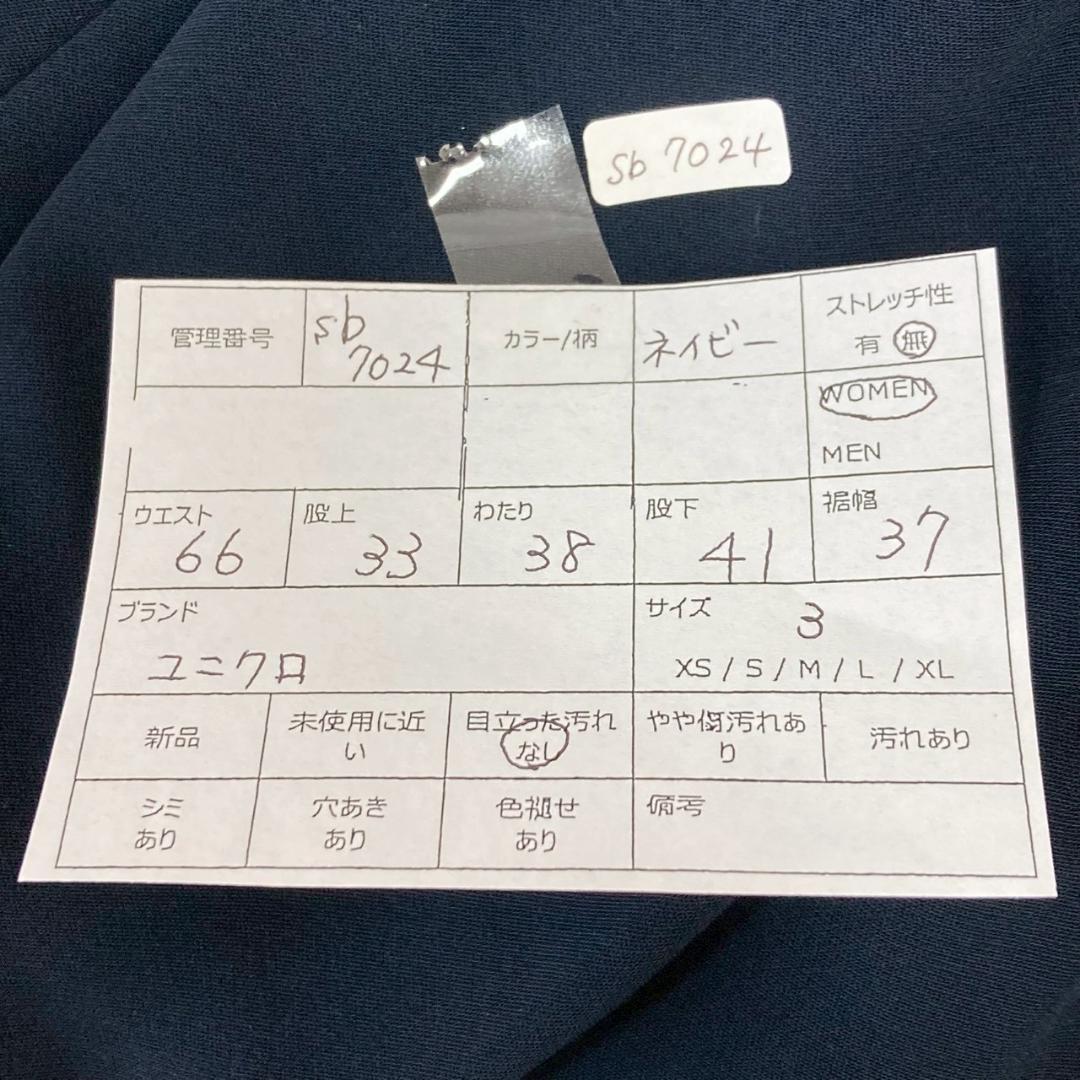 sb 7024
管理番号
sb
7024
カラー/柄
ネイビー
ストレッチ性
有 無
WOMEN
MEN
ウエスト
66
股上
33
わたり
38
股下
41
裾幅
37
ブランド
ユニクロ
サイズ
3
XS / S / M / L / XL
新品
未使用に近
い
目立った汚れ
なし
やや傷汚れあ
り
汚れあり
シミ
あり
穴あき
あり
色褪せ
あり
備考